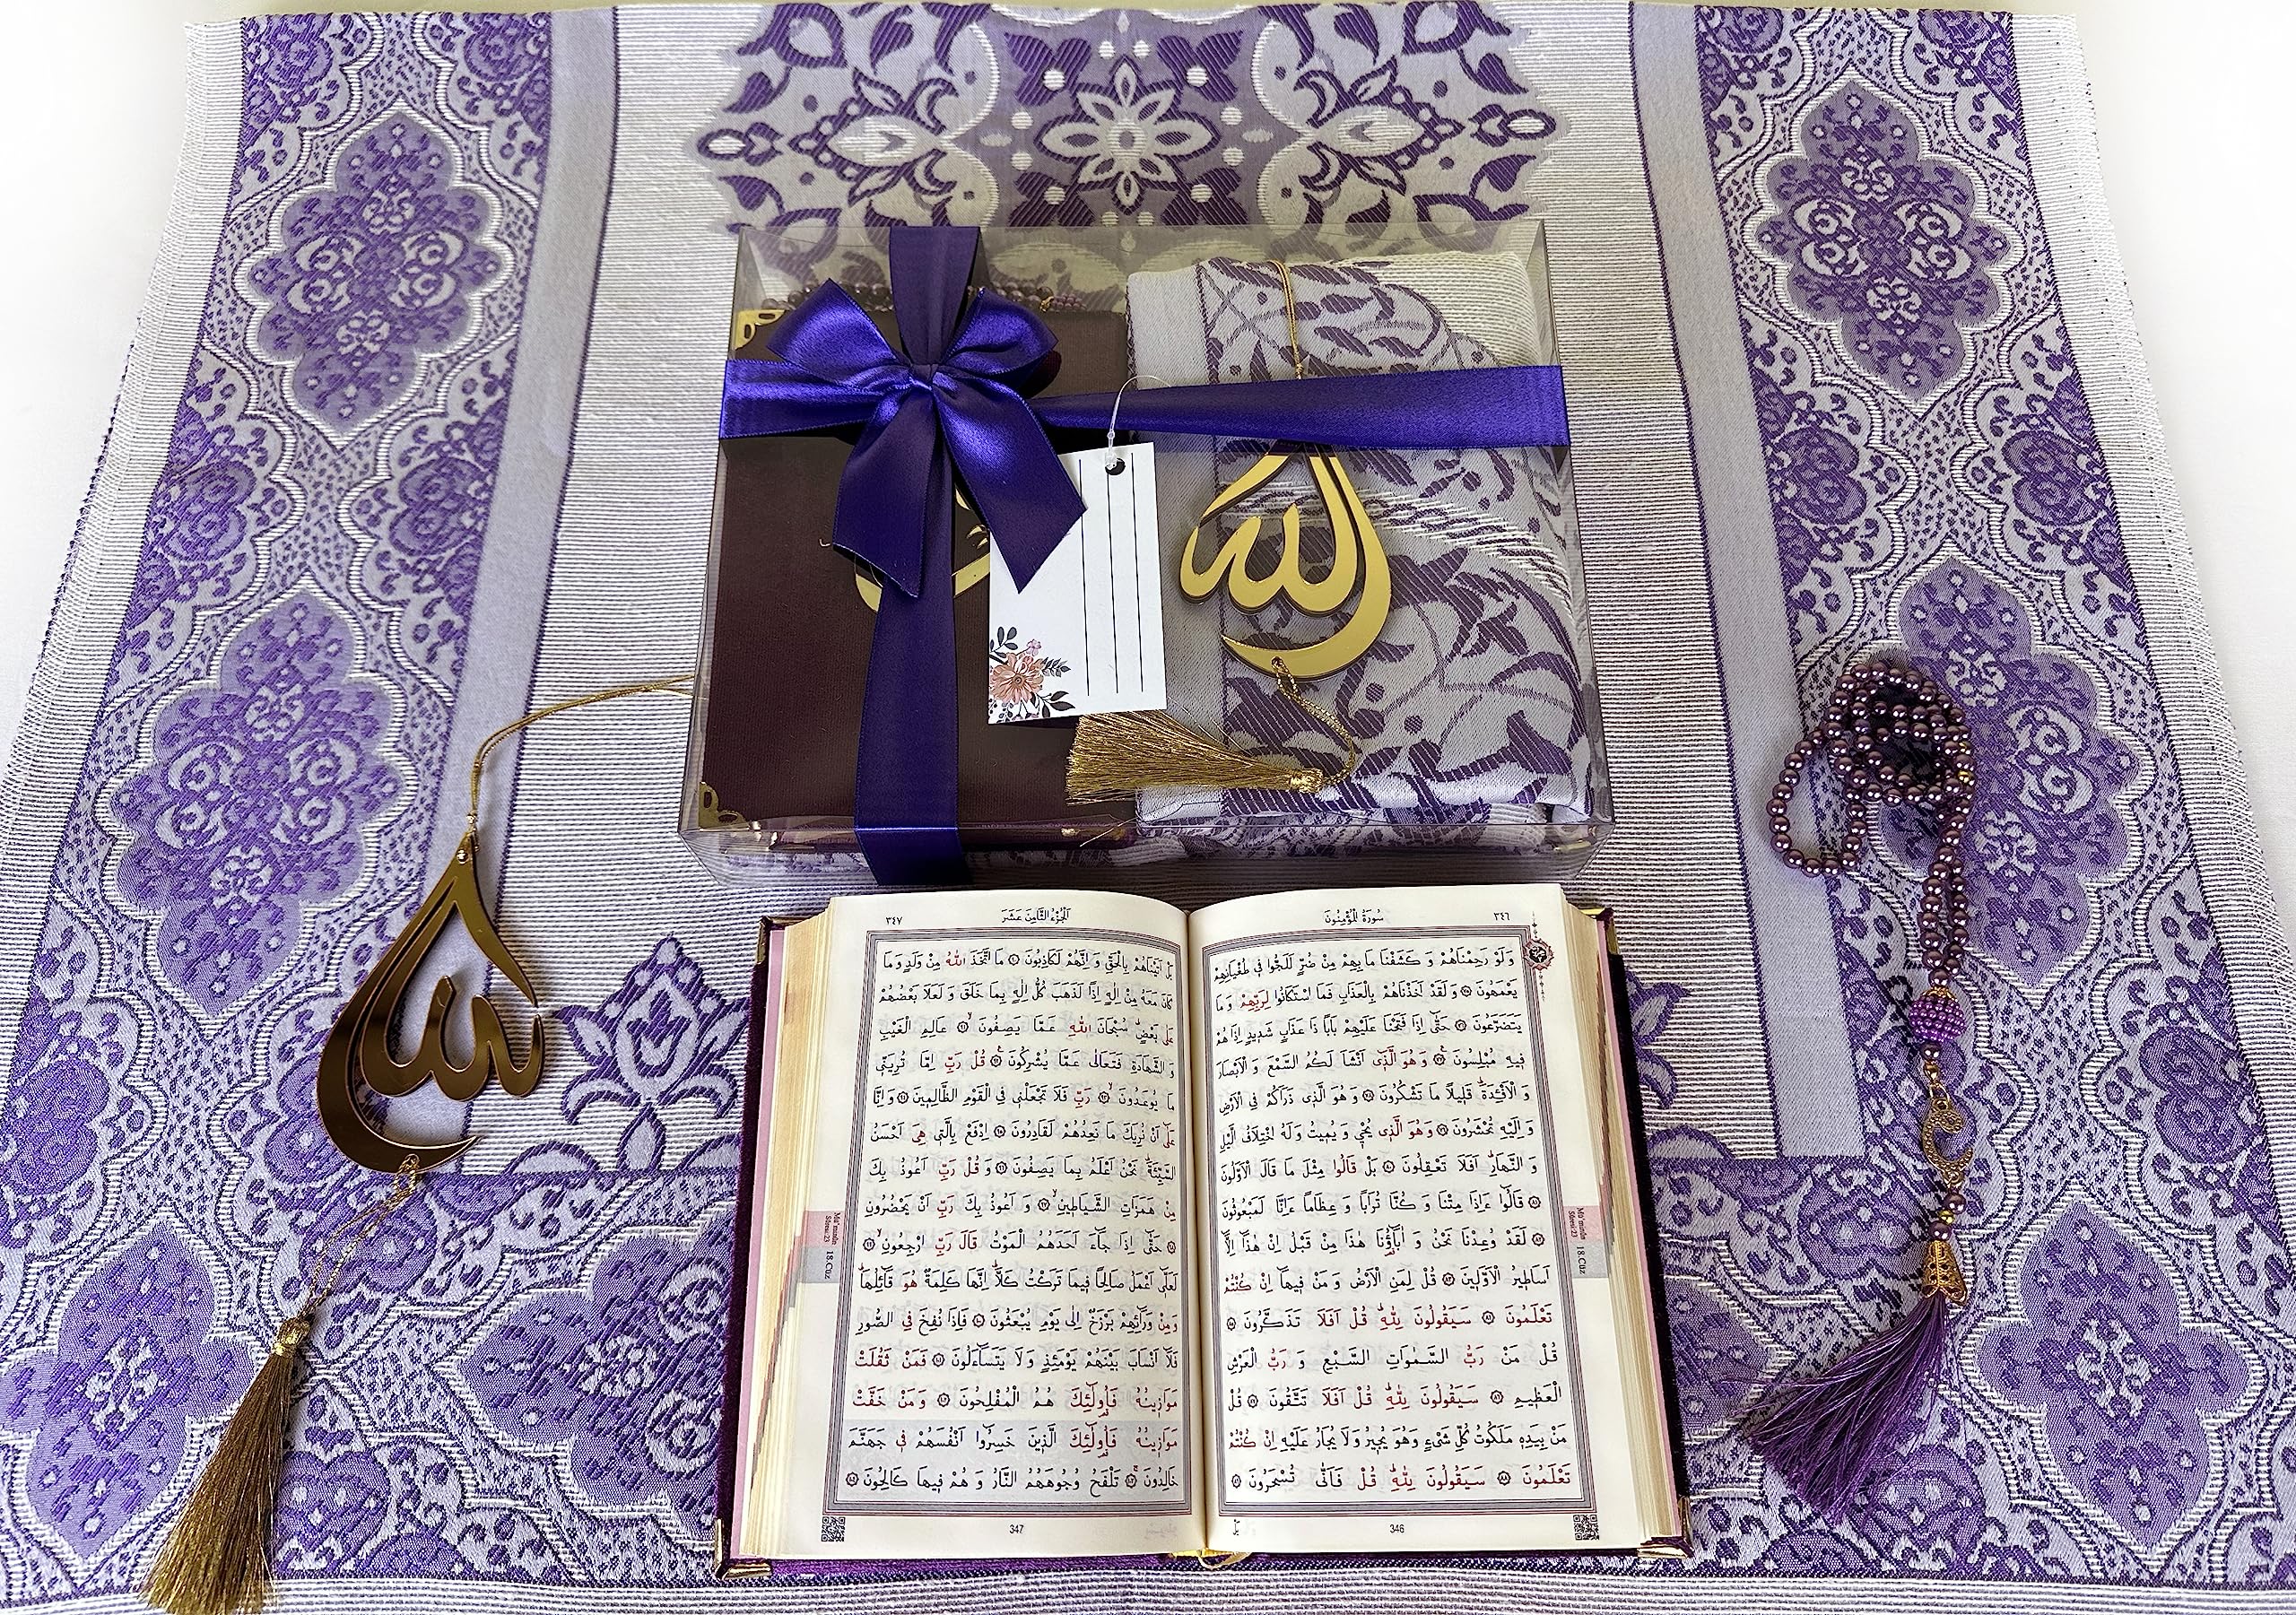 الله
٣٤٦ سُورَةُ الْمُؤْمِنُونَ
وَلَوْ رَحِمْنَاهُمْ وَ كَشَفْنَا مَا بِهِمْ مِنْ ضُرٍّ لَلَجُّوا فِي طُغْيَانِهِمْ
يَعْمَهُونَ ۝ وَلَقَدْ اَخَذْنَاهُمْ بِالْعَذَابِ فَمَا اسْتَكَانُوا لِرَبِّهِمْ وَ مَا
يَتَضَرَّعُونَ ۝ حَتّٰى اِذَا فَتَحْنَا عَلَيْهِمْ بَابًا ذَا عَذَابٍ شَدِيدٍ اِذَا هُمْ
فِيهِ مُبْلِسُونَ ۝ وَ هُوَ الَّذِي اَنْشَاَ لَكُمُ السَّمْعَ وَ الْاَبْصَارَ
وَ الْاَفْـِٔدَةَ قَلِيلًا مَا تَشْكُرُونَ ۝ وَ هُوَ الَّذِي ذَرَاَكُمْ فِي الْاَرْضِ
وَ اِلَيْهِ تُحْشَرُونَ ۝ وَ هُوَ الَّذِي يُحْيِي وَ يُمِيتُ وَ لَهُ اخْتِلَافُ الَّيْلِ
وَ النَّهَارِ اَفَلَا تَعْقِلُونَ ۝ بَلْ قَالُوا مِثْلَ مَا قَالَ الْاَوَّلُونَ
۝ قَالُوا ءَاِذَا مِتْنَا وَ كُنَّا تُرَابًا وَ عِظَامًا ءَاِنَّا لَمَبْعُوثُونَ
۝ لَقَدْ وُعِدْنَا نَحْنُ وَ اٰبَٓاؤُنَا هٰذَا مِنْ قَبْلُ اِنْ هٰذَٓا اِلَّٓا
اَسَاطِيرُ الْاَوَّلِينَ ۝ قُلْ لِمَنِ الْاَرْضُ وَ مَنْ فِيهَٓا اِنْ كُنْتُمْ
تَعْلَمُونَ ۝ سَيَقُولُونَ لِلّٰهِ قُلْ اَفَلَا تَذَكَّرُونَ ۝
قُلْ مَنْ رَبُّ السَّمٰوَاتِ السَّبْعِ وَ رَبُّ الْعَرْشِ
الْعَظِيمِ ۝ سَيَقُولُونَ لِلّٰهِ قُلْ اَفَلَا تَتَّقُونَ ۝ قُلْ
مَنْ بِيَدِهِ مَلَكُوتُ كُلِّ شَيْءٍ وَهُوَ يُجِيرُ وَلَا يُجَارُ عَلَيْهِ اِنْ كُنْتُمْ
تَعْلَمُونَ ۝ سَيَقُولُونَ لِلّٰهِ قُلْ فَاَنّٰى تُسْحَرُونَ ۝
بَلْ
346
Mü'minûn
Sûresi/23
18.Cüz
اَلْجُزْءُ الثَّامِنَ عَشَرَ ٣٤٧
بَلْ اَتَيْنَاهُمْ بِالْحَقِّ وَ اِنَّهُمْ لَكَاذِبُونَ ۝ مَا اتَّخَذَ اللّٰهُ مِنْ وَلَدٍ وَ مَا
كَانَ مَعَهُ مِنْ اِلٰهٍ اِذًا لَذَهَبَ كُلُّ اِلٰهٍ بِمَا خَلَقَ وَ لَعَلَا بَعْضُهُمْ
عَلٰى بَعْضٍ سُبْحَانَ اللّٰهِ عَمَّا يَصِفُونَ ۝ عَالِمِ الْغَيْبِ
وَ الشَّهَادَةِ فَتَعَالٰى عَمَّا يُشْرِكُونَ ۝ قُلْ رَبِّ اِمَّا تُرِيَنِّي
مَا يُوعَدُونَ ۝ رَبِّ فَلَا تَجْعَلْنِي فِي الْقَوْمِ الظَّالِمِينَ ۝ وَ اِنَّا
عَلٰٓى اَنْ نُرِيَكَ مَا نَعِدُهُمْ لَقَادِرُونَ ۝ اِدْفَعْ بِالَّتِي هِيَ اَحْسَنُ
السَّيِّئَةَ نَحْنُ اَعْلَمُ بِمَا يَصِفُونَ ۝ وَ قُلْ رَبِّ اَعُوذُ بِكَ
مِنْ هَمَزَاتِ الشَّيَاطِينِ ۝ وَ اَعُوذُ بِكَ رَبِّ اَنْ يَحْضُرُونِ
۝ حَتّٰٓى اِذَا جَٓاءَ اَحَدَهُمُ الْمَوْتُ قَالَ رَبِّ ارْجِعُونِ ۝
لَعَلِّٓي اَعْمَلُ صَالِحًا فِيمَا تَرَكْتُ كَلَّا اِنَّهَا كَلِمَةٌ هُوَ قَٓائِلُهَا
وَمِنْ وَرَٓائِهِمْ بَرْزَخٌ اِلٰى يَوْمِ يُبْعَثُونَ ۝ فَاِذَا نُفِخَ فِي الصُّورِ
فَلَٓا اَنْسَابَ بَيْنَهُمْ يَوْمَئِذٍ وَ لَا يَتَسَٓاءَلُونَ ۝ فَمَنْ ثَقُلَتْ
مَوَازِينُهُ فَاُولٰٓئِكَ هُمُ الْمُفْلِحُونَ ۝ وَ مَنْ خَفَّتْ
مَوَازِينُهُ فَاُولٰٓئِكَ الَّذِينَ خَسِرُٓوا اَنْفُسَهُمْ فِي جَهَنَّمَ
خَالِدُونَ ۝ تَلْفَحُ وُجُوهَهُمُ النَّارُ وَ هُمْ فِيهَا كَالِحُونَ ۝
347
Mü'minûn
Sûresi/23
18.Cüz
الله